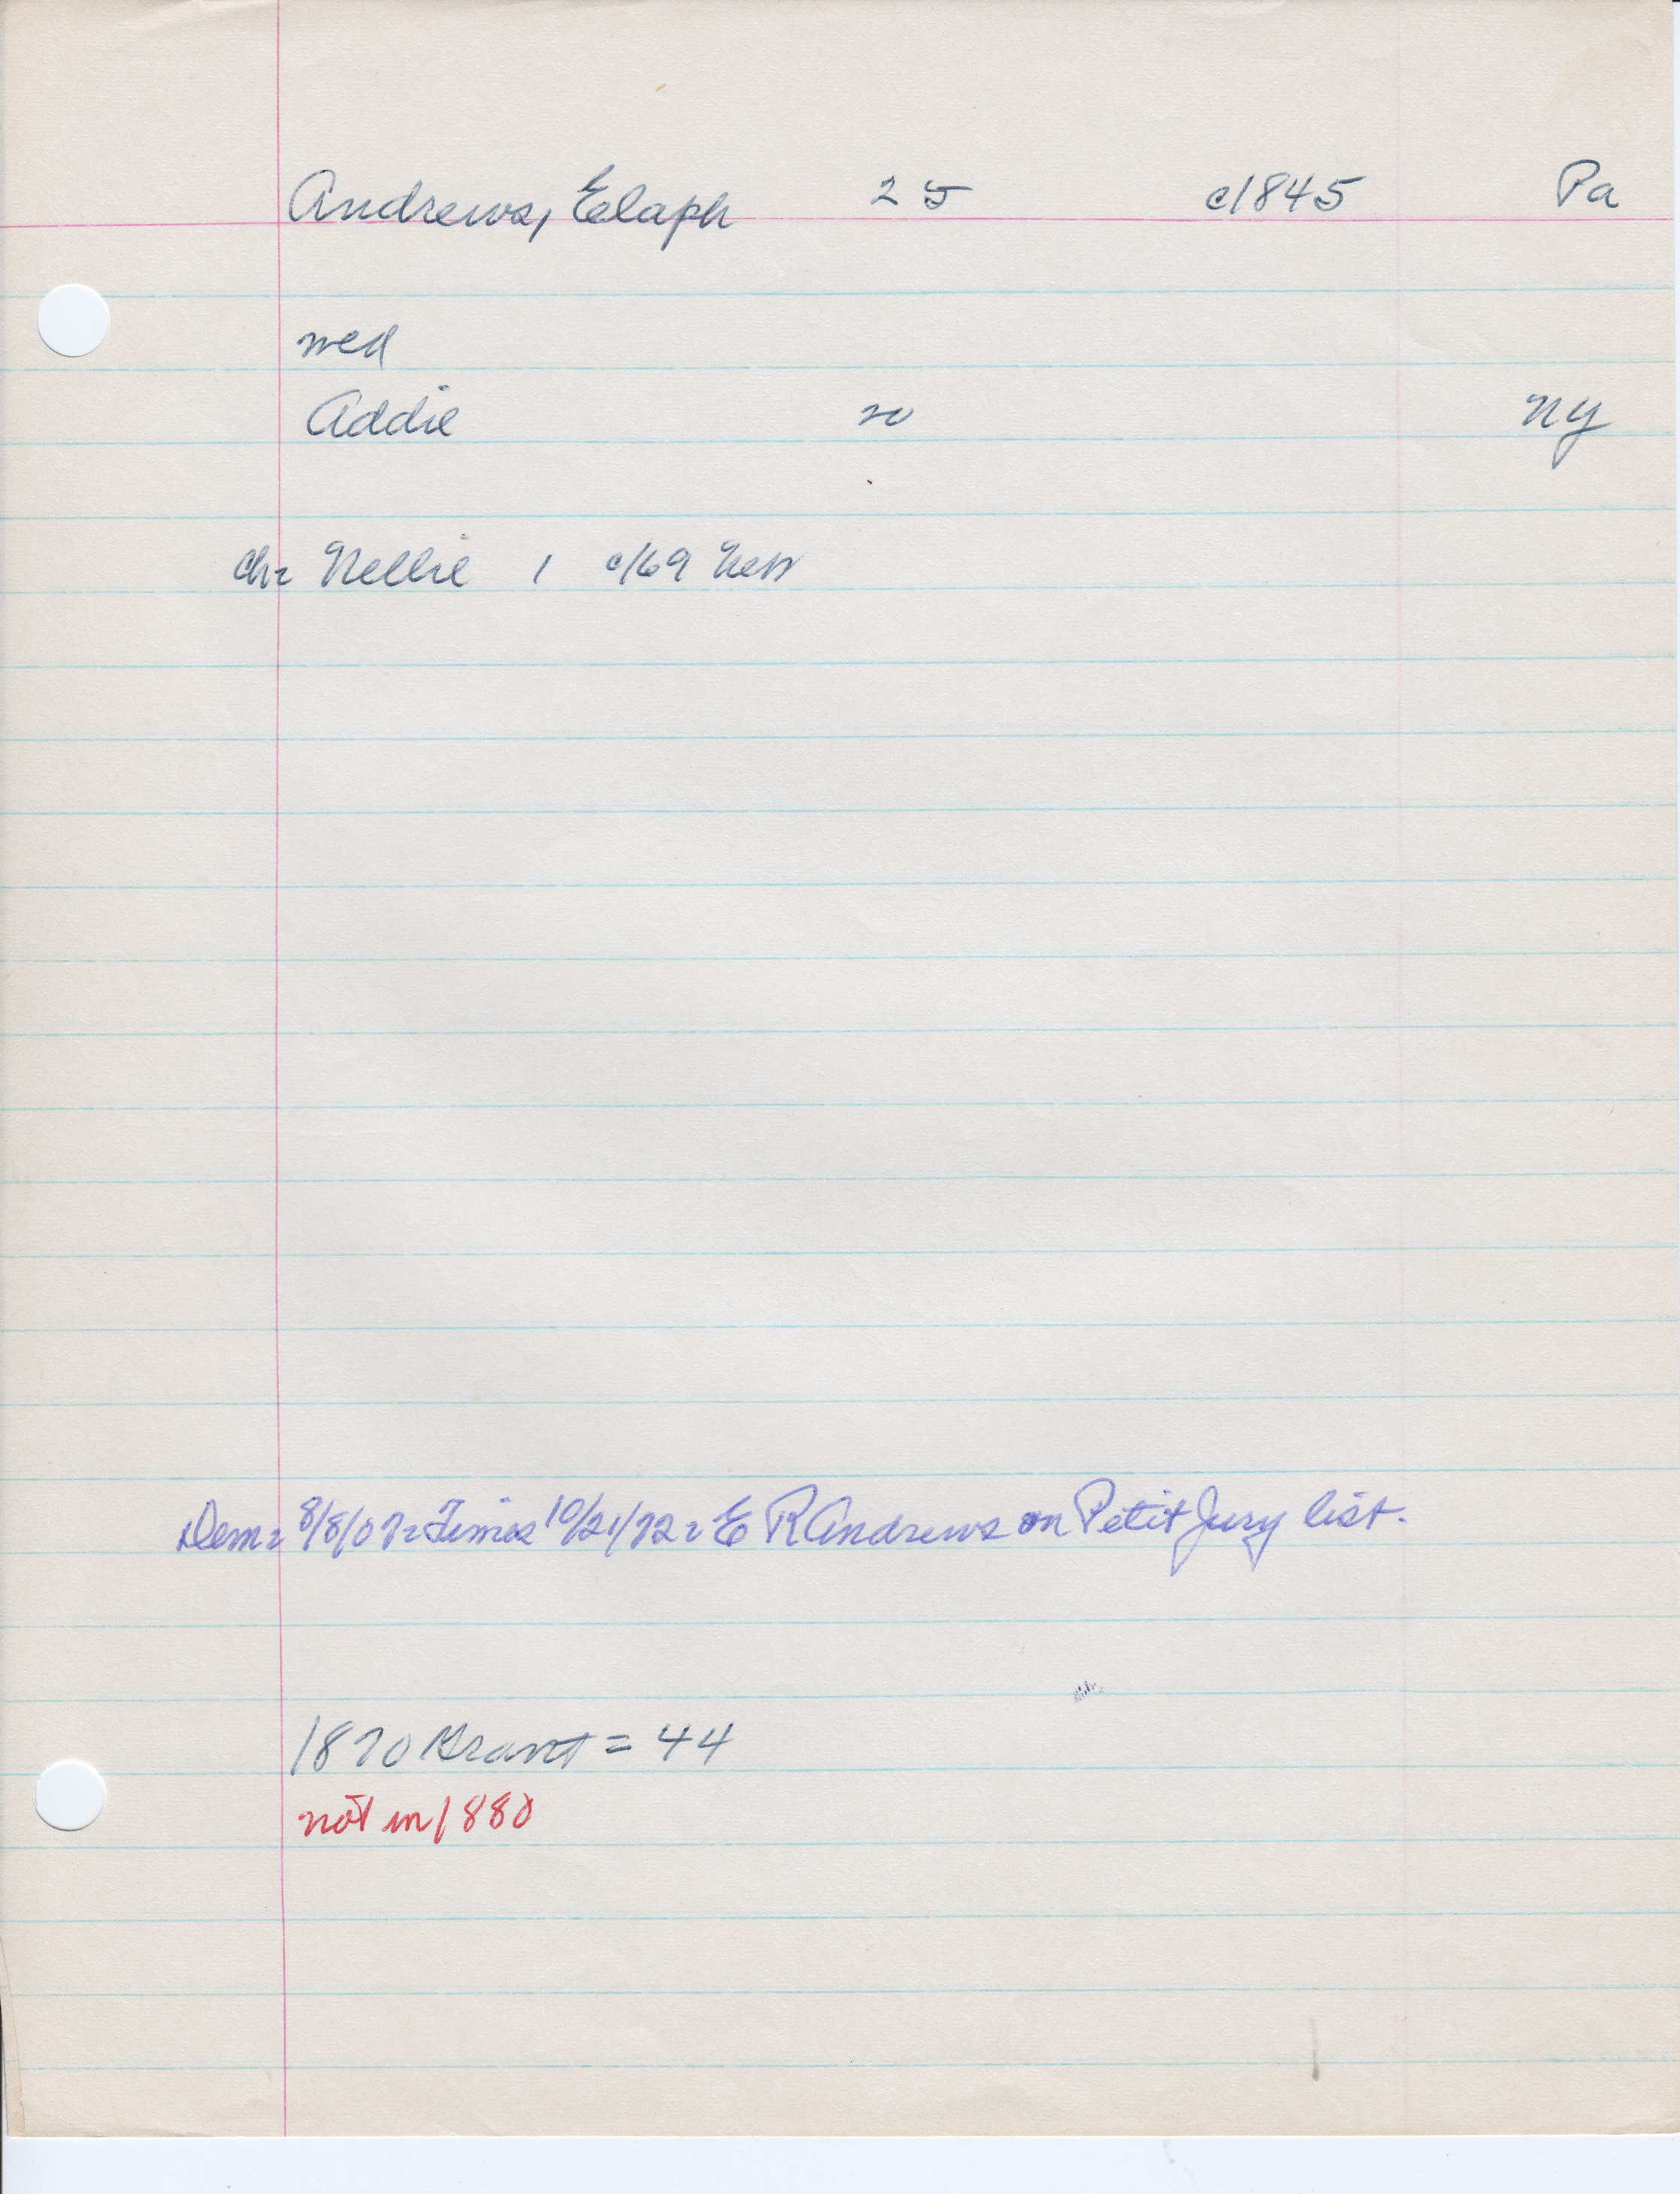 Andrews, Elaph 25 c1845 Pa
wed
Addie 20 NY
ch= Nellie 1 c/69 Neb
Dem= 8/8/07= Times 10/21/72= E R Andrews on Petit Jury list.
1870 Grant = 44
not in 1880